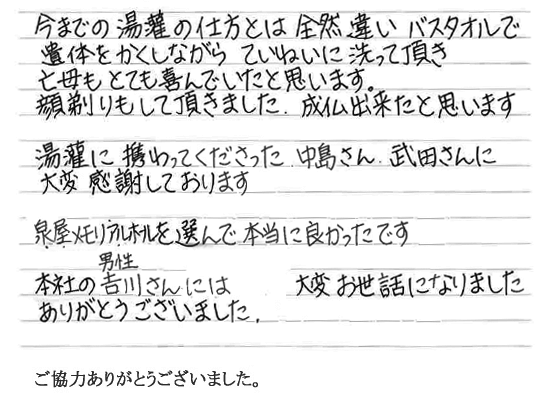 今までの湯灌の仕方とは全然違いバスタオルで
遺体をかくしながらていねいに洗って頂き
亡母もとても喜んでいたと思います。
顔剃りもして頂きました.成仏出来たと思います
湯灌に携わってくださった中島さん.武田さんに
大変感謝しております
泉屋メモリアルホールを選んで本当に良かったです
男性
本社の吉川さんには 大変お世話になりました
ありがとうございました.
ご協力ありがとうございました。